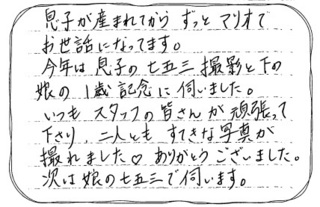 息子が産まれてから ずっと マリオで
お世話になってます。
今年は 息子の 七五三 撮影と下の
娘の 1歳 記念に 伺いました。
いつも スタッフの 皆さんが 頑張って
下さり、二人とも すてきな 写真が
撮れました♡ ありがとう ございました。
次は 娘の七五三で伺います。